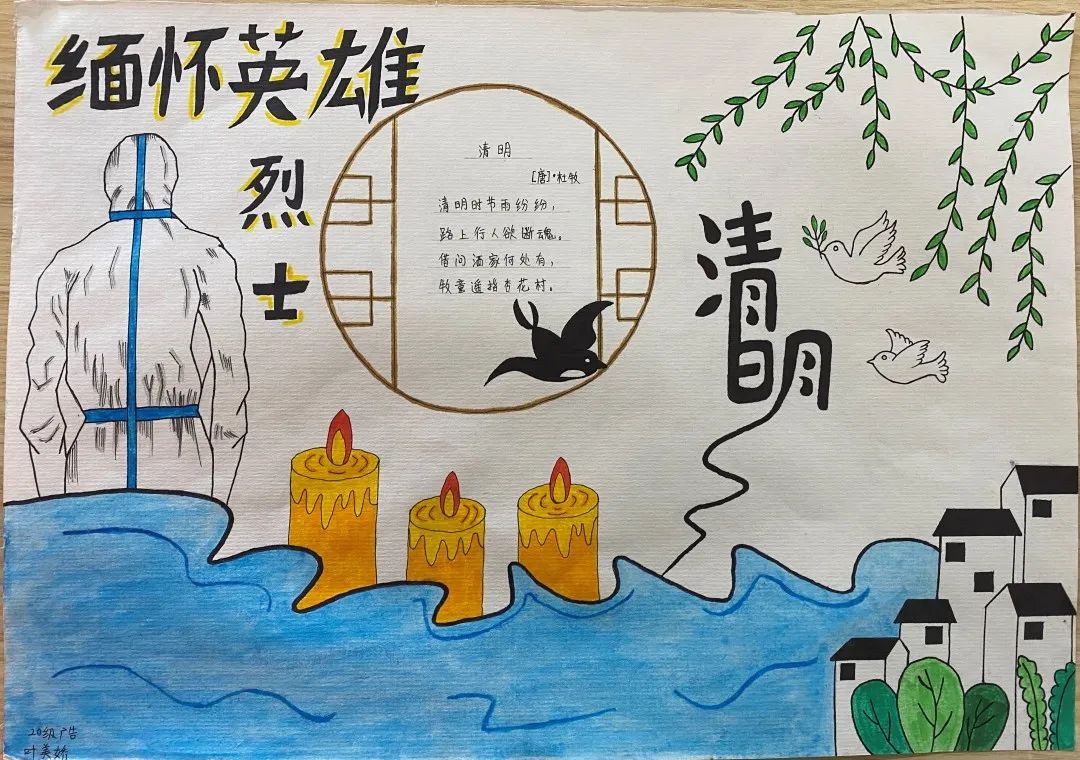 缅怀英雄
烈
士
清明
[唐]·杜牧
清明时节雨纷纷，
路上行人欲断魂。
借问酒家何处有，
牧童遥指杏花村。
清明
20级广告
叶美娇